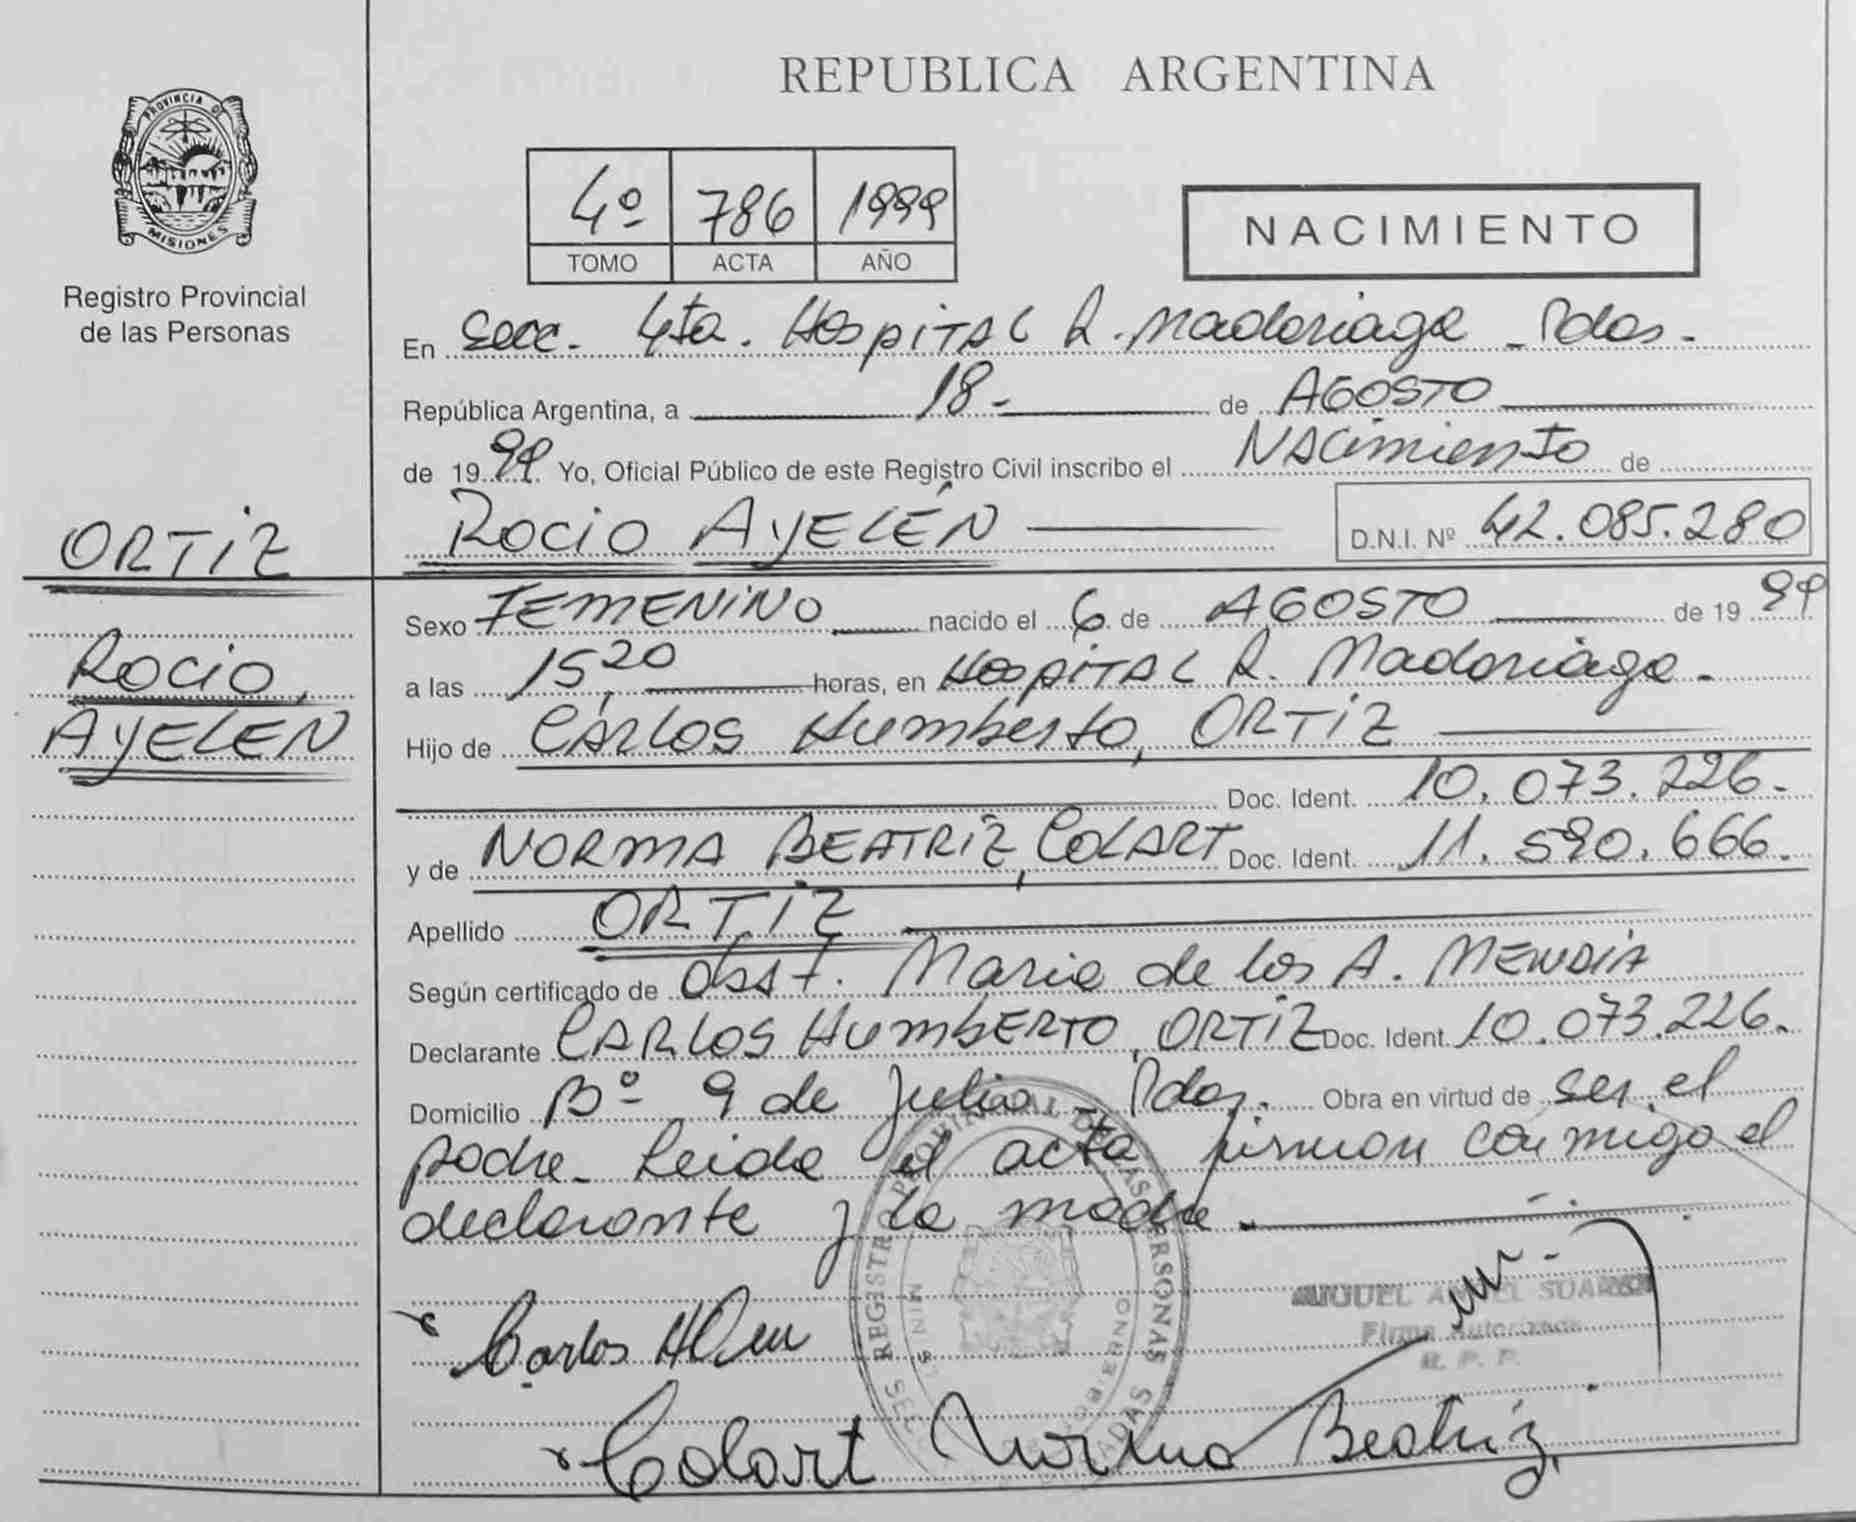 REPUBLICA ARGENTINA
PROVINCIA DE
MISIONES
Registro Provincial
de las Personas
4º 786 1999
TOMO ACTA AÑO
NACIMIENTO
En Secc. 4ta. Hospital R. Madariaga - Pdas.
República Argentina, a 18- de AGOSTO
de 1999 Yo, Oficial Público de este Registro Civil inscribo el NACimiento de
ROCIO AYELÉN D.N.I. Nº 42.085.280
ORTIZ
ROCIO,
AYELEN
Sexo FEMENINO nacido el 6 de AGOSTO de 1999
a las 15,20 horas, en HospitAL R. Madariaga.
Hijo de CARLOS Humberto, ORTIZ
Doc. Ident. 10.073.226.
y de NORMA BEATRIZ, COLART Doc. Ident. 11.590.666.
Apellido ORTIZ
Según certificado de Obst. Maria de los A. MENDIA
Declarante CARLOS HUMBERTO, ORTIZ Doc. Ident. 10.073.226.
Domicilio Bº 9 de Julio - Pdas. Obra en virtud de ser el
padre. Leida el acta firman conmigo el
declarante y la madre.
REGISTRO PROVINCIAL DE LAS PERSONAS
MIGUEL ANGEL SUAREZ
Firma Autorizada
R. P. P.
Carlos
Colart Norma Beatriz